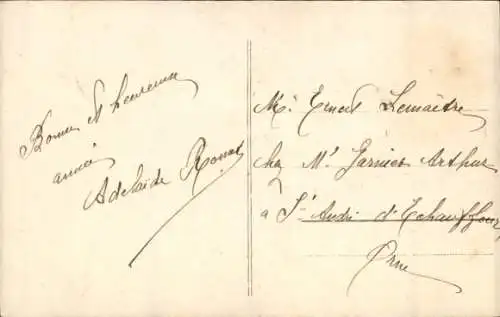 Bonne et heureuse
année
Adelaïde Ronat
Mr Ernest Lemaître
chez Mr Garnier Arthur
à St André d'Echauffour
Orne